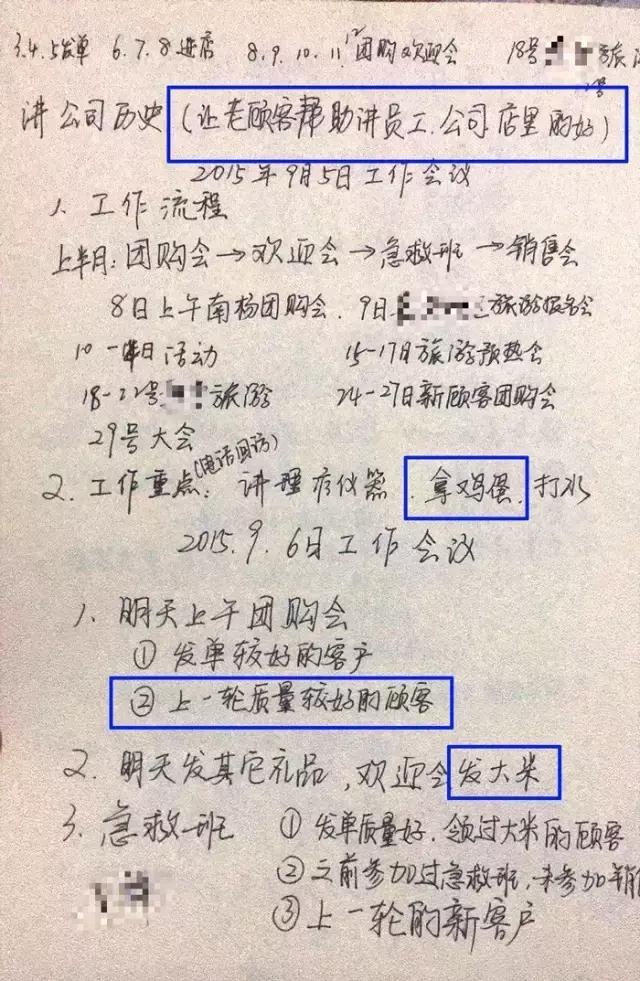 3.4.5发单 6.7.8进店 8.9.10.11.12团购欢迎会 18号 旅
22号
讲公司历史(让老顾客帮助讲员工.公司店里的好)
2015年9月5日工作会议
1、工作流程
上半月:团购会→欢迎会→急救班→销售会
8日上午南杨团购会. 9日 旅游报名会
10-14日活动 15-17日旅游预热会
18-22号 旅游 24-27日新顾客团购会
29号大会
(电话回访)
2.工作重点:讲理疗仪器.拿鸡蛋.打水
2015.9.6日工作会议
1、明天上午团购会
①发单较好的客户
②上一轮质量较好的顾客
2.明天发其它礼品,欢迎会发大米
3.急救班 ①发单质量好.领过大米的顾客
②之前参加过急救班,未参加销
③上一轮的新客户